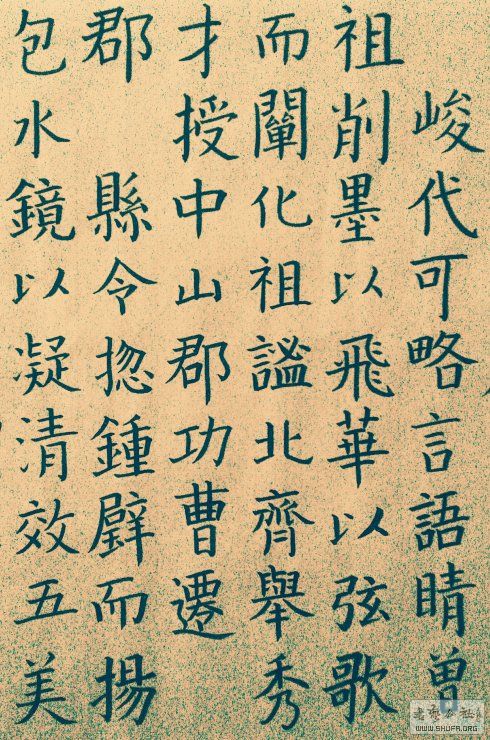 峻代可略言語晴曾
祖削墨以飛華以弦歌
而闡化祖謐北齊舉秀
才授中山郡功曹遷
郡縣令惣鍾而揚
包水鏡以凝清效五美
WWW.SHUFA.ORG